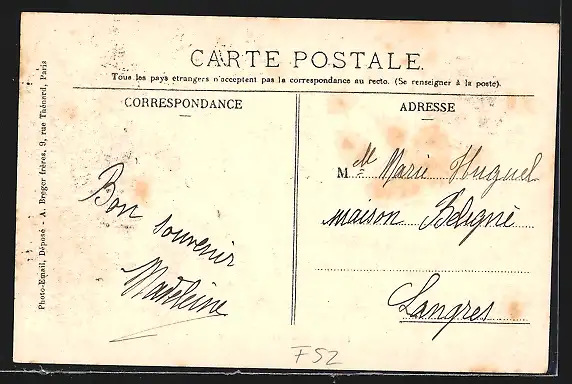 CARTE POSTALE.
Tous les pays étrangers n'acceptent pas la correspondance au recto. (Se renseigner à la poste).
CORRESPONDANCE
Bon souvenir
Madeleine
ADRESSE
M elle Marie Huguel
maison Boligné
Langres
Photo-Email, Déposé - A. Breger frères, 9, rue Thénard, Paris
F52